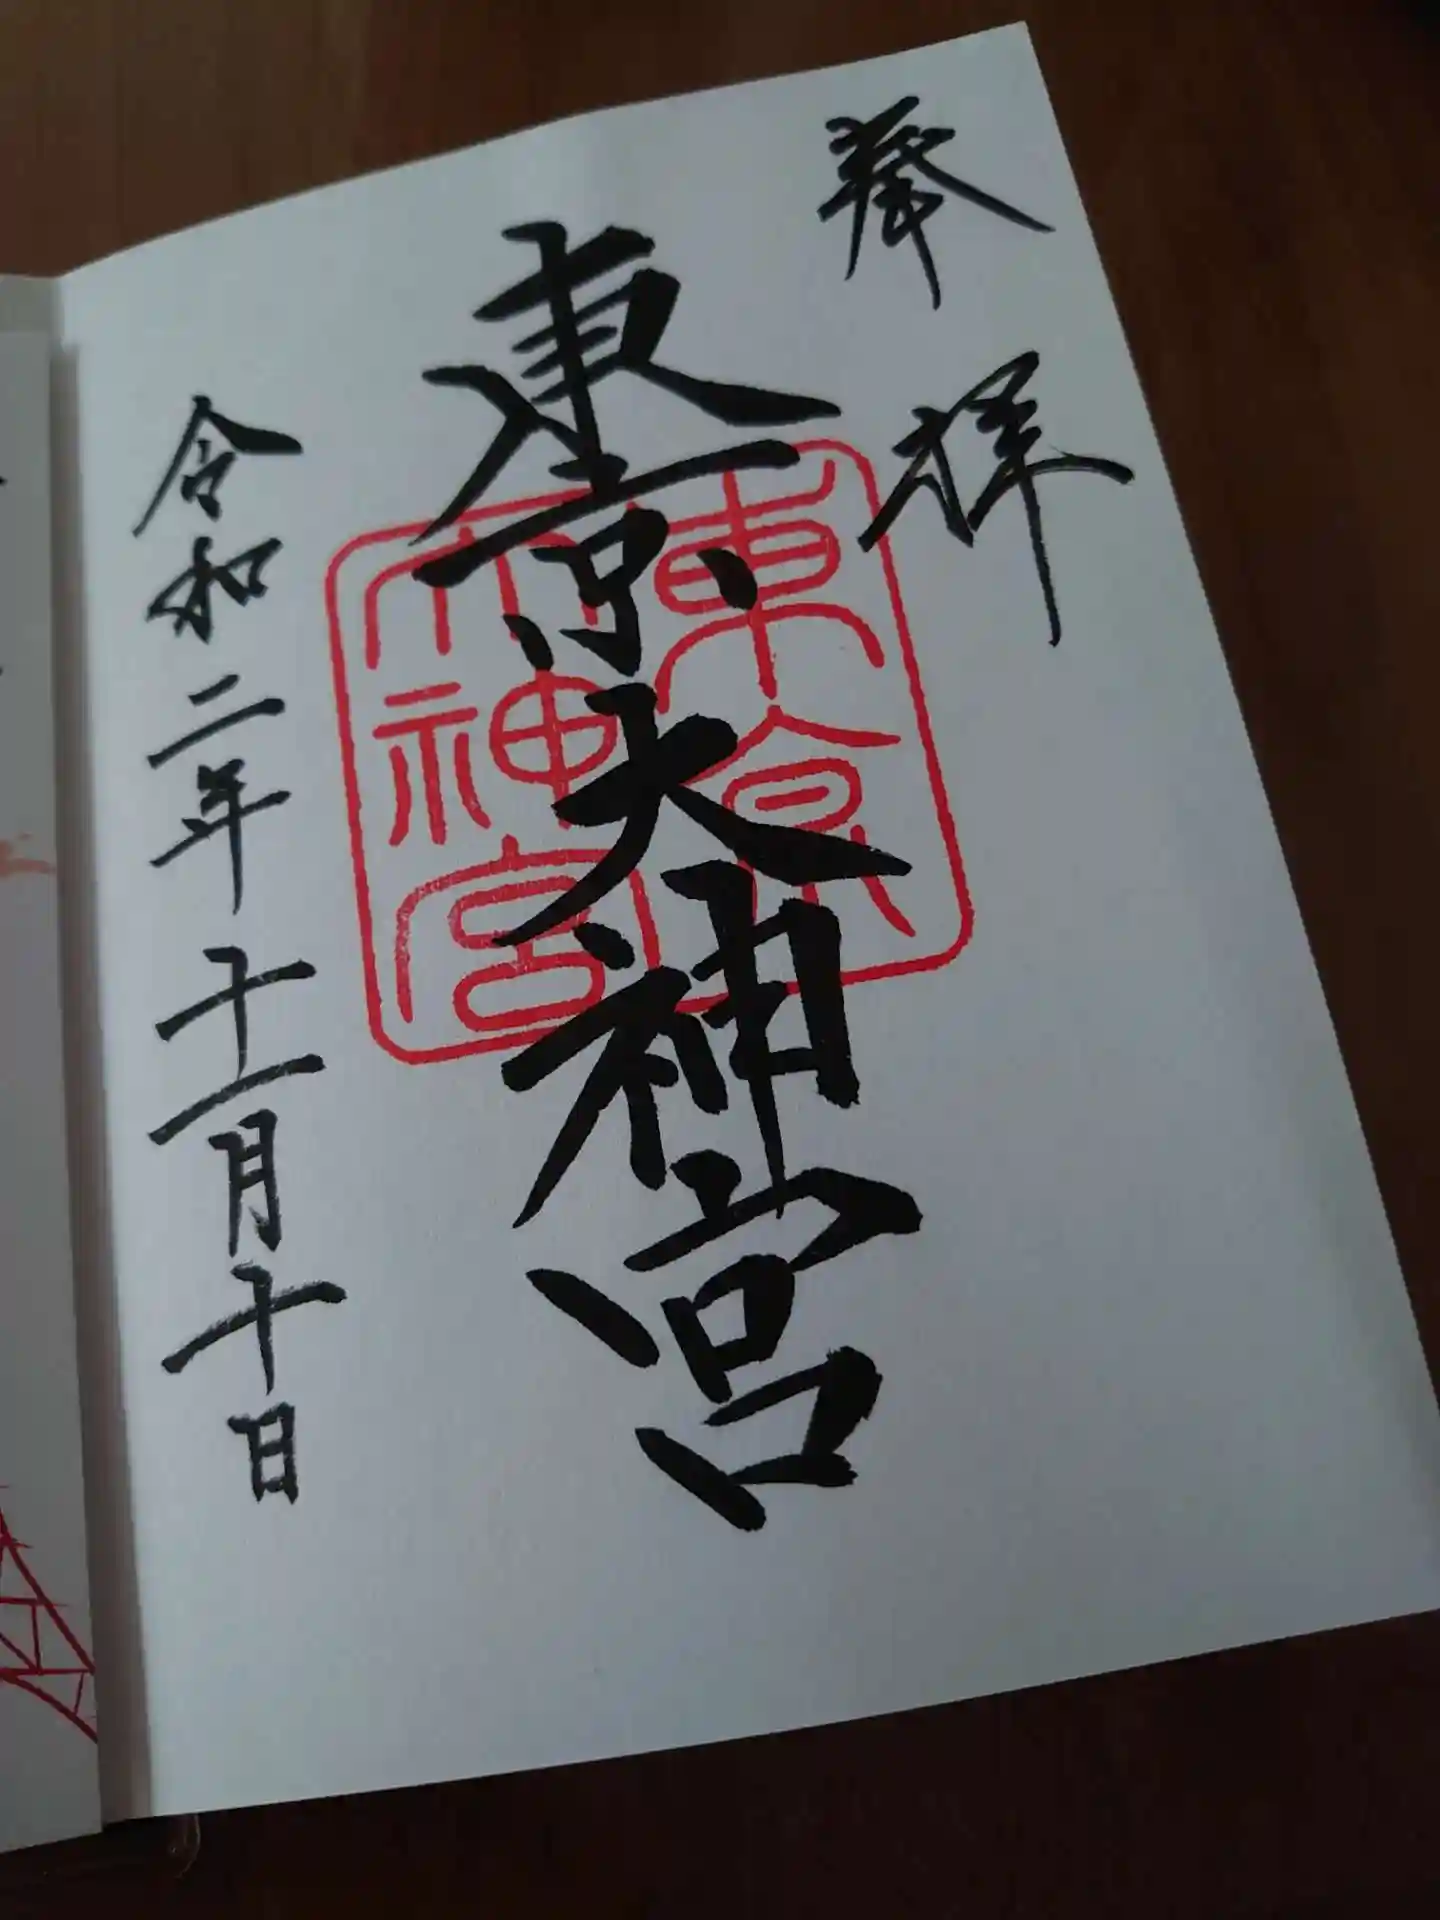 奉拝
東京大神宮
東京大神宮
令和二年十一月十日